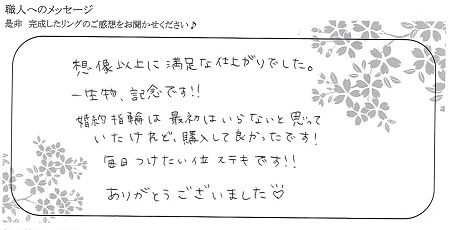 職人へのメッセージ
是非 完成したリングのご感想をお聞かせください♪
想像以上に満足な仕上がりでした。
一生物、記念です!!
婚約指輪は最初はいらないと思って
いたけれど、購入して良かったです!
毎日つけたい位ステキです!!
ありがとうございました♡